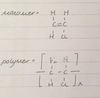 monomer = H H
C=C
H Cl
polymer = [ H H
C - C
H Cl ] n